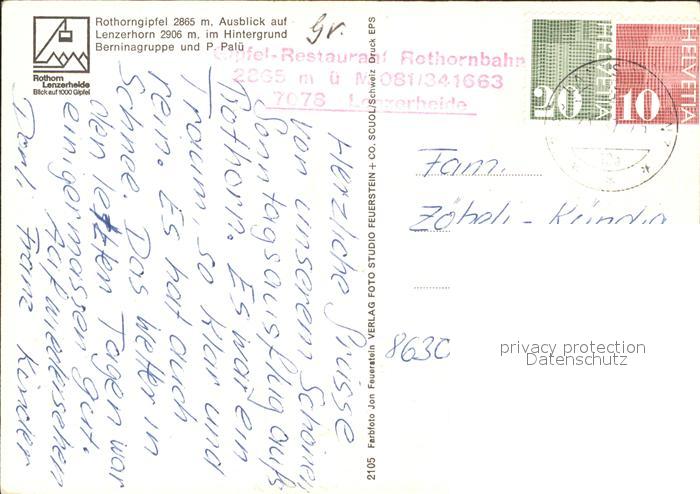 Rothorngipfel 2865 m, Ausblick auf
Lenzerhorn 2906 m, im Hintergrund
Berninagruppe und P. Palü
Rothorn
Lenzerheide
Blick auf 1000 Gipfel
Gr.
Gipfel-Restaurant Rothornbahn
2865 m ü M 081/341663
7078 Lenzerheide
HELVETIA
20
HELVETIA
10
Herzliche Grüsse
von unserem schönen
Sonntagsausflug aufs
Rothorn. Es war ein
Traum, so klar und
rein. Es hat auch
Schnee. Das Wetter in
den letzten Tagen war
einigermassen gut.
Auf Wiedersehen
Franz Kinder
2105 Farbfoto Jon Feuerstein VERLAG FOTO STUDIO FEUERSTEIN + CO. SCUOL/Schweiz Druck EPS
Fam.
8630
privacy protection
Datenschutz